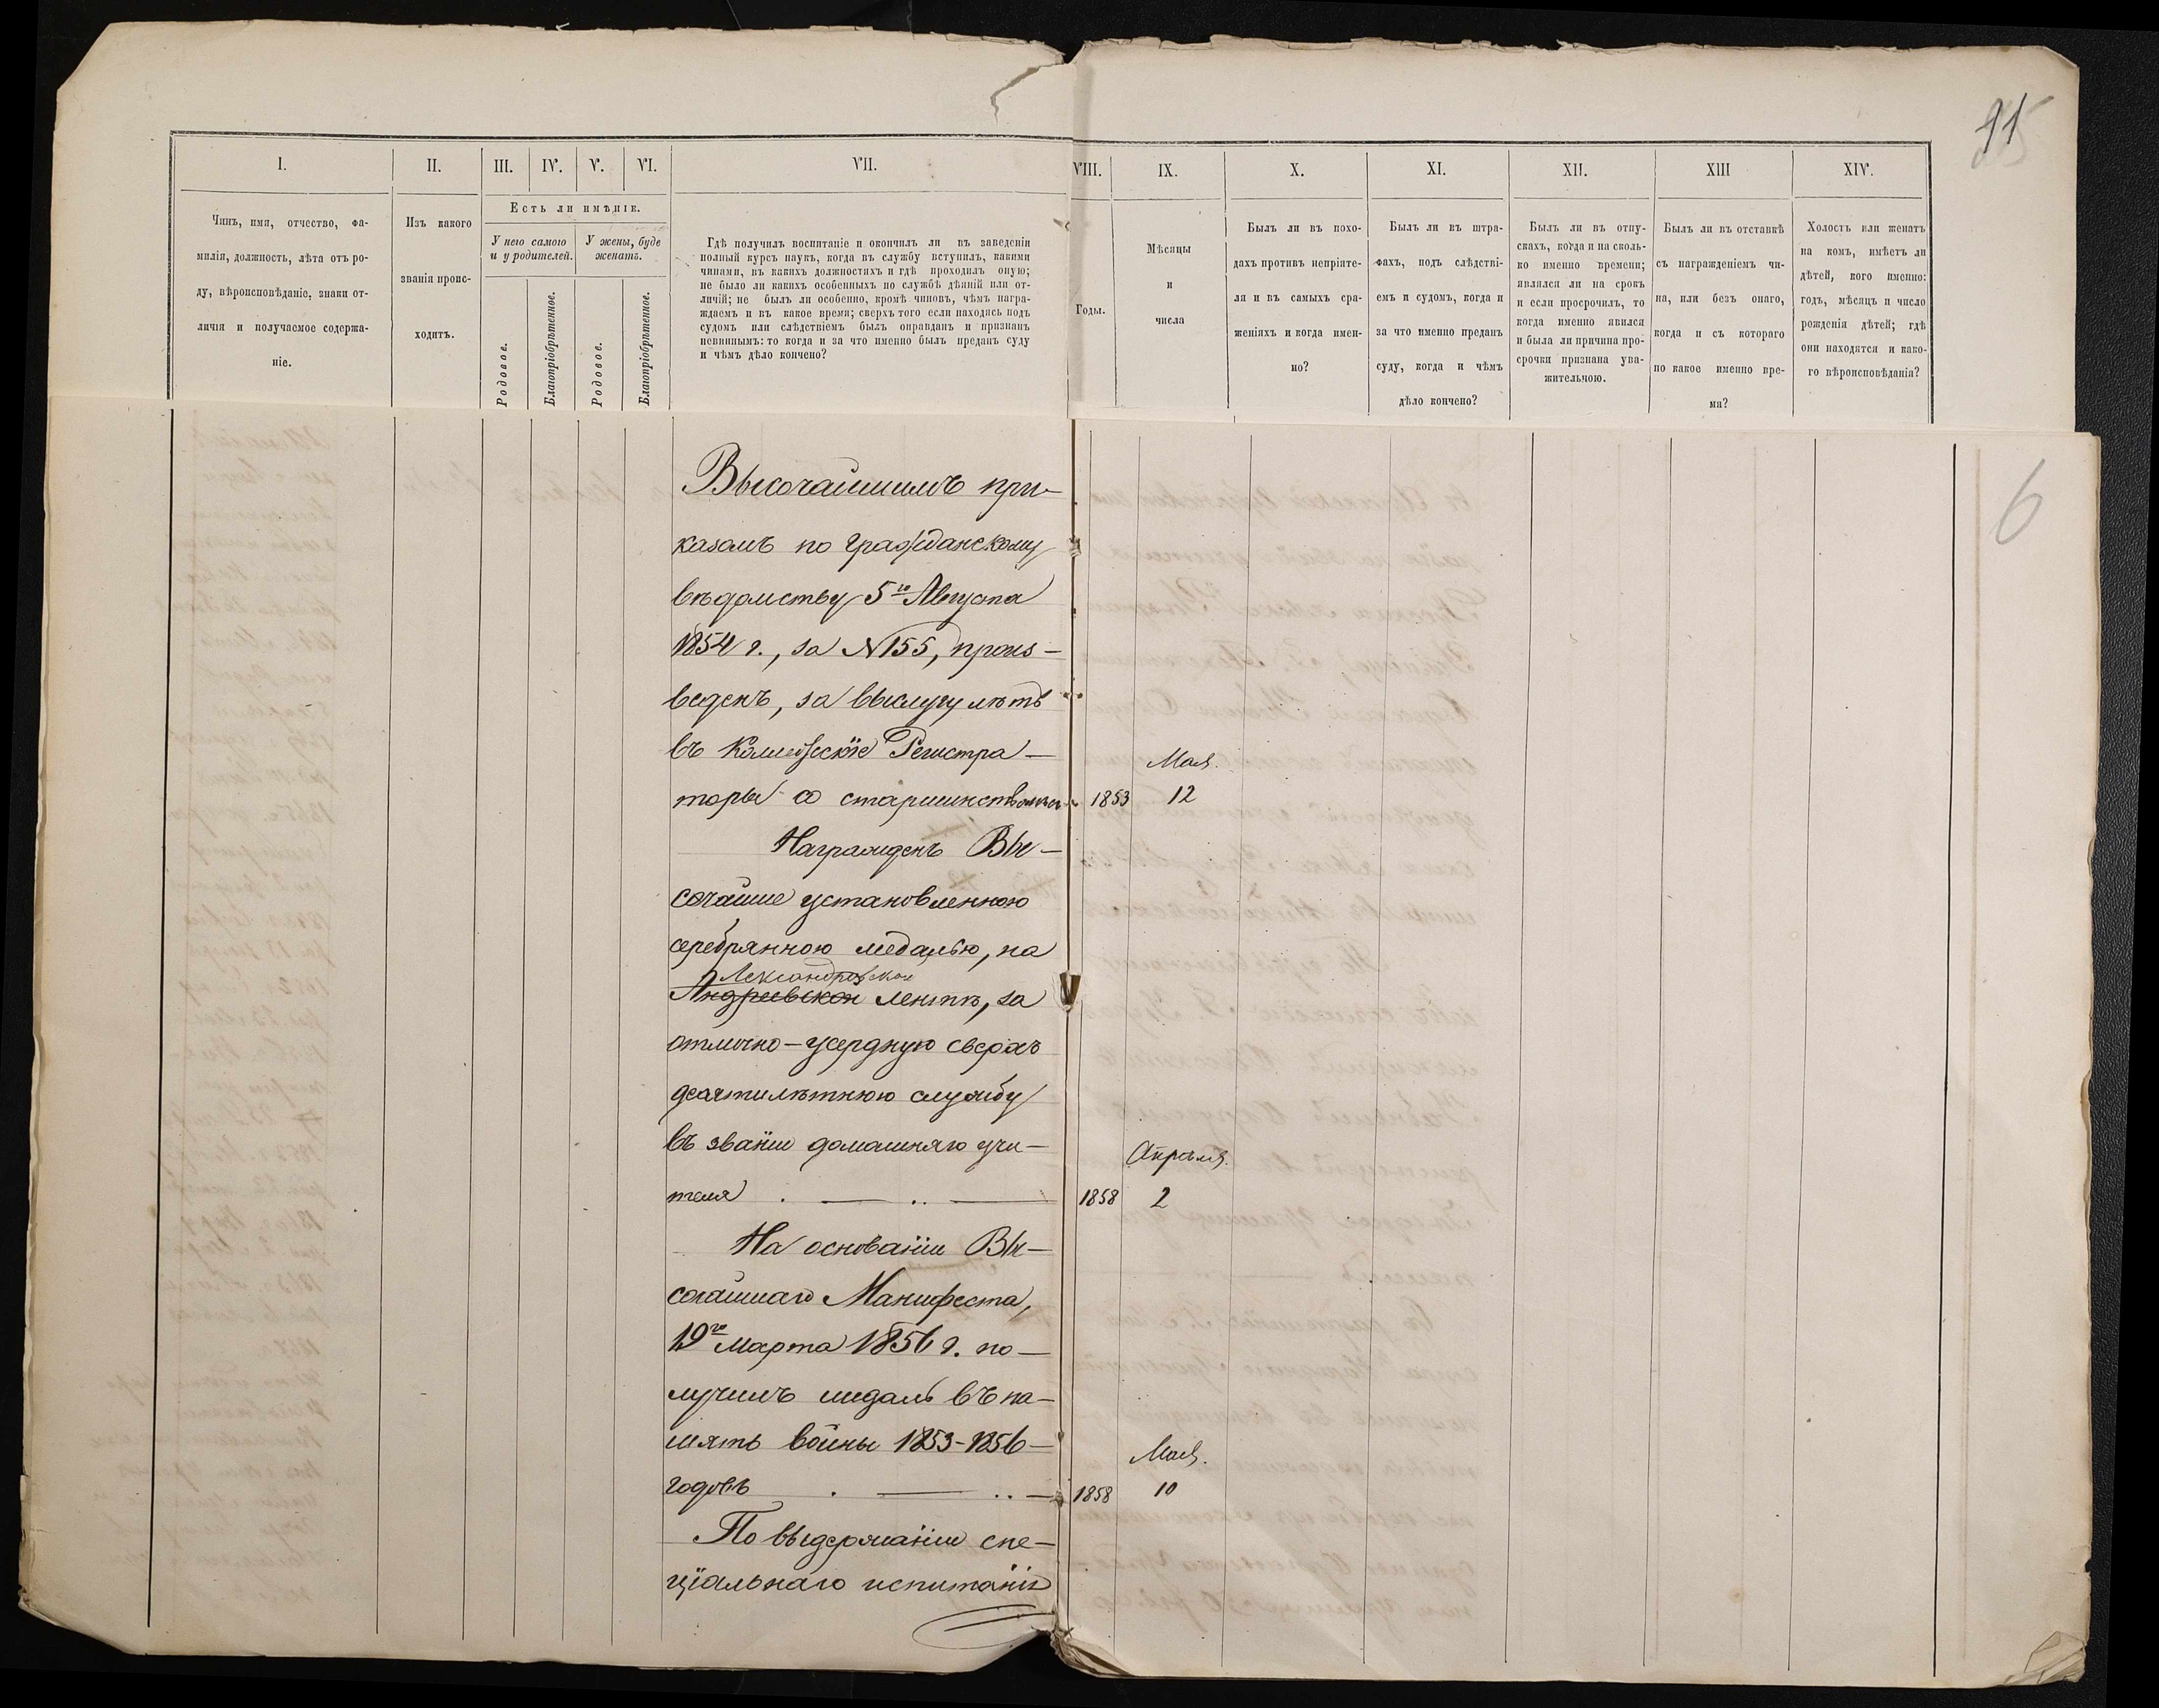 91
I.
II.
III.
IV.
V.
VI.
VII.
VIII.
IX.
X.
XI.
XII.
XIII
XIV.
Чинъ, имя, отчество, фа-
милія, должность, лѣта отъ ро-
ду, вѣроисповѣданіе, знаки от-
личія и получаемое содержа-
ніе.
Изъ какого
званія проис-
ходитъ.
Есть ли имѣніе.
У него самого
и у родителей.
У жены, буде
женатъ.
Родовое.
Благопріобрѣтенное.
Родовое.
Благопріобрѣтенное.
Гдѣ получилъ воспитаніе и окончилъ ли въ заведеніи
полный курсъ наукъ, когда въ службу вступилъ, какими
чинами, въ какихъ должностяхъ и гдѣ проходилъ оную;
не было ли какихъ особенныхъ по службѣ дѣяній или от-
личій; не былъ ли особенно, кромѣ чиновъ, чѣмъ награ-
ждаемъ и въ какое время; сверхъ того если находясь подъ
судомъ или слѣдствіемъ былъ оправданъ и признанъ
невиннымъ: то когда и за что именно былъ преданъ суду
и чѣмъ дѣло кончено?
Годы.
Мѣсяцы
и
числа
Былъ ли въ похо-
дахъ противъ непріяте-
ля и въ самыхъ сра-
женіяхъ и когда имен-
но?
Былъ ли въ штра-
фахъ, подъ слѣдстві-
емъ и судомъ, когда и
за что именно преданъ
суду, когда и чѣмъ
дѣло кончено?
Былъ ли въ отпу-
скахъ, когда и на сколь-
ко именно времени;
являлся ли на срокъ
и если просрочилъ, то
когда именно явился
и была ли причина про-
срочки признана ува-
жительною.
Былъ ли въ отставкѣ
съ награжденіемъ чи-
на, или безъ онаго,
когда и съ котораго
по какое именно вре-
мя?
Холостъ или женатъ
на комъ, имѣетъ ли
дѣтей, кого именно:
годъ, мѣсяцъ и число
рожденія дѣтей; гдѣ
они находятся и како-
го вѣроисповѣданія?
6
Высочайшимъ при-
казомъ по гражданскому
вѣдомству 5го Августа
1854 г., за N155, произ-
веденъ, за выслугу лѣтъ
въ Коллежскіе Регистра-
Мая.
торы со старшинствомъ 1853 12
Награжденъ Вы-
сочайше установленною
серебрянною медалью, на
Александровской
Андреевской лентѣ, за
отлично-усердную сверхъ
десятилѣтнюю службу
въ званіи домашняго учи-
Апрѣля.
теля 1858 2
На основаніи Вы-
сочайшаго Манифеста,
19го Марта 1856 г. по-
лучилъ медаль въ па-
мять войны 1853-1856
Мая.
годовъ 1858 10
По выдержаніи спе-
ціальнаго испытанія